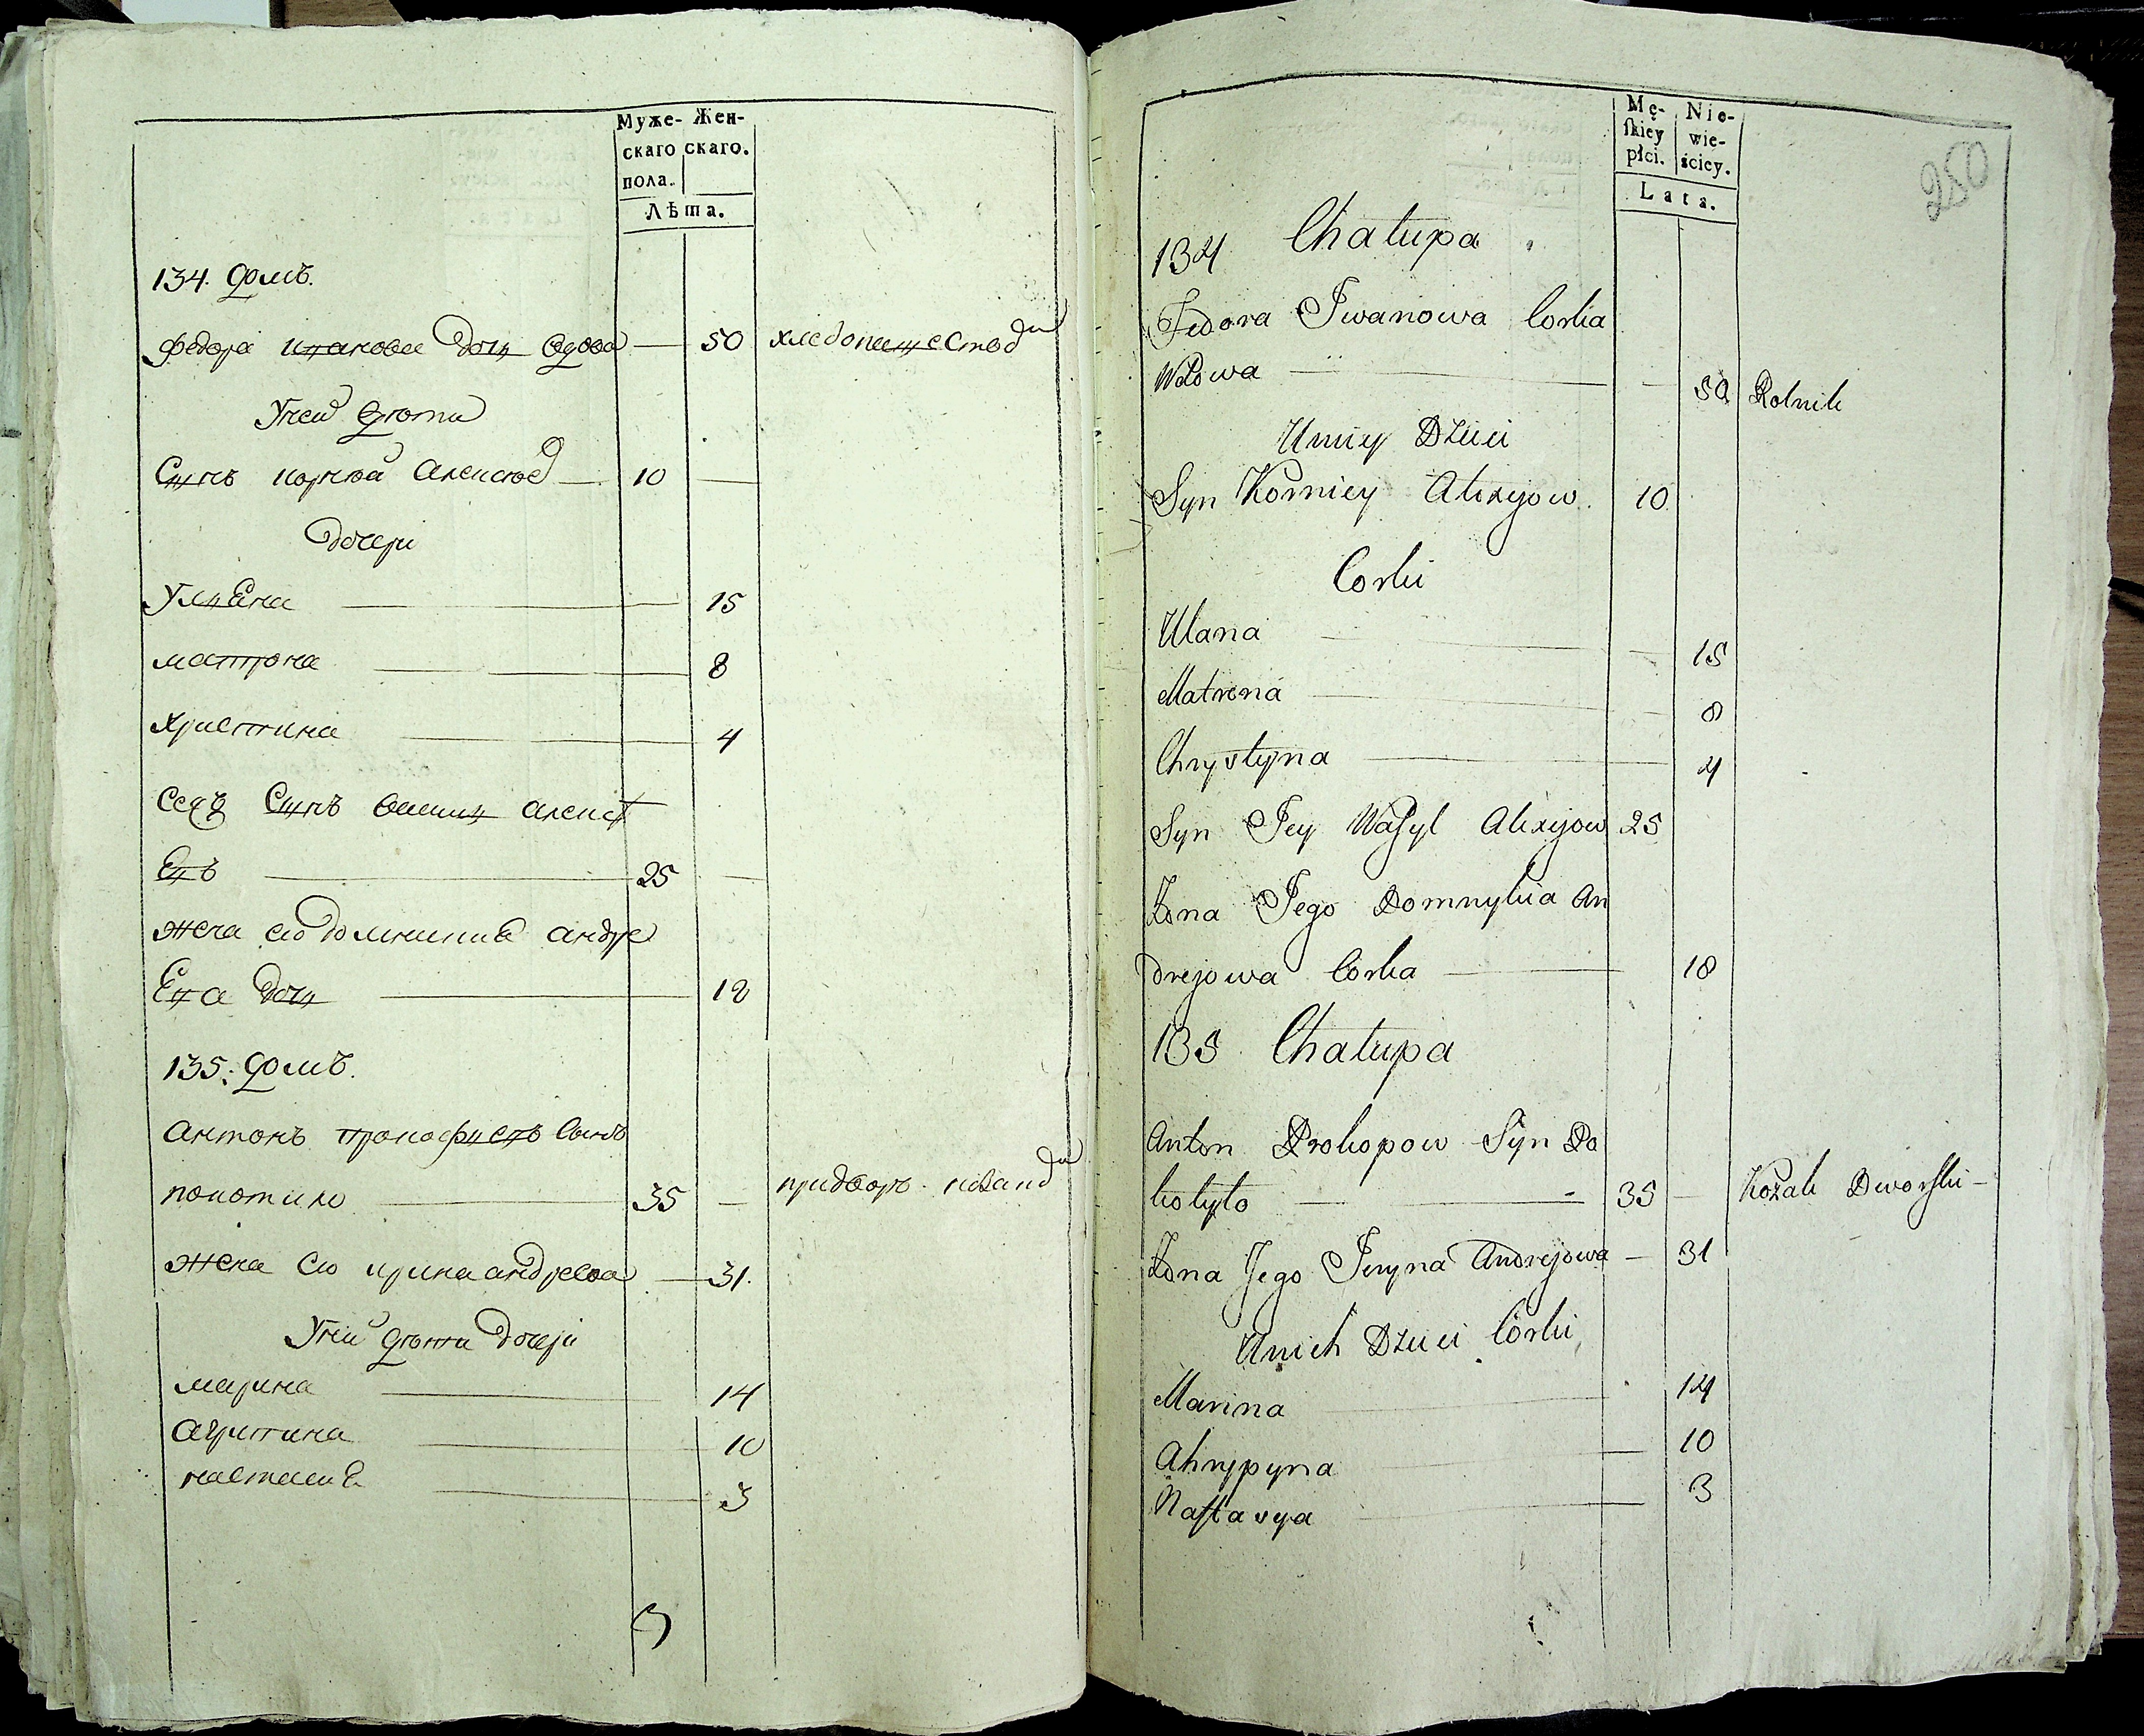 Муже- Жен-
скаго скаго.
пола.
Лѣта.
134. домъ.
федора иванова дочь вдова — 50 хлебопашеством
У нея дѣти
Сынъ корней алексеев — 10 —
дочери
Улияна — 15
матрона — 8
христина — 4
Сынъ василий алексе
евъ — 25 —
жена его домникия андре
ева дочь — 18
135. домъ.
антонъ прокофиевъ сынъ
покотило — 35 — придвор. козак
жена его ирина андреева — 31.
У них дѣти дочери
марина — 14
агрипина — 10
настасия — 3
Mę- Nie-
skiey wie-
płci. ściey.
Lata.
250
134 Chałupa
Fedora Iwanowa Corka
Wdowa — — 50 Rolnik
U niey Dzieci
Syn Korniey Alexejow. 10
Corki
Ulana — — 15
Matrena — — 8
Chrystyna — 4
Syn Jey Wasyl Alexejow 25
Żona Jego Domnykia An
drejowa Corka — 18
135 Chałupa
Anton Prokopow Syn Po
kotyło — 35 — Kozak Dworski —
Żona Jego Jeryna Andrejowa — 31
U nich Dzieci Córki
Marina — 14
Ahrypyna — 10
Nastasya — 3